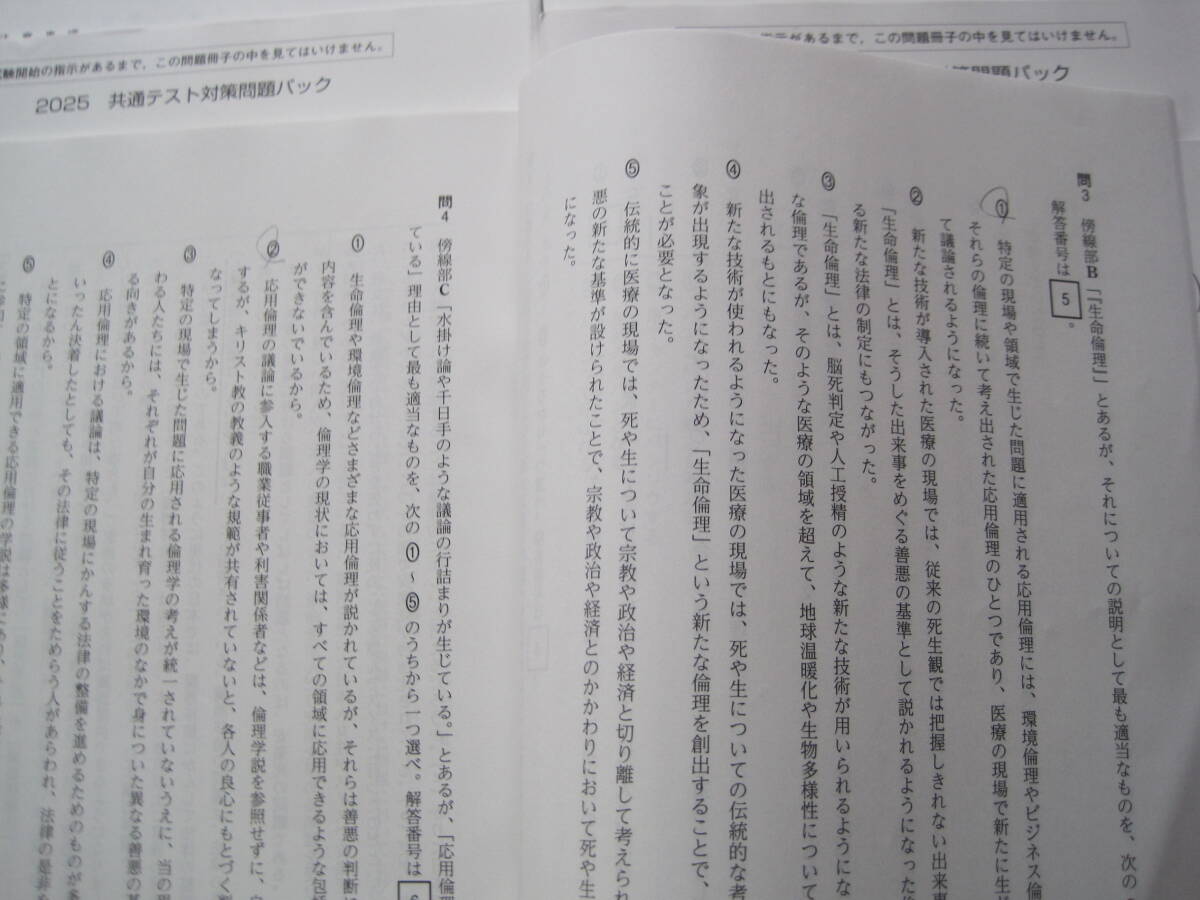 試験開始の指示があるまで，この問題冊子の中を見てはいけません。
2025 共通テスト対策問題パック
指示があるまで，この問題冊子の中を見てはいけません。
策問題パック
問3 傍線部B「『生命倫理』」とあるが、それについての説明として最も適当なものを、次の
解答番号は 5 。
① 特定の現場や領域で生じた問題に適用される応用倫理には、環境倫理やビジネス倫
それらの倫理に続いて考え出された応用倫理のひとつであり、医療の現場で新たに生
て議論されるようになった。
② 新たな技術が導入された医療の現場では、従来の死生観では把握しきれない出来事
「生命倫理」とは、そうした出来事をめぐる善悪の基準として説かれるようになった
る新たな法律の制定にもつながった。
③ 「生命倫理」とは、脳死判定や人工授精のような新たな技術が用いられるようにな
な倫理であるが、そのような医療の領域を超えて、地球温暖化や生物多様性について
出されるもとにもなった。
④ 新たな技術が使われるようになった医療の現場では、死や生についての伝統的な考
象が出現するようになったため、「生命倫理」という新たな倫理を創出することで、
ことが必要となった。
⑤ 伝統的に医療の現場では、死や生について宗教や政治や経済と切り離して考えられ
悪の新たな基準が設けられたことで、宗教や政治や経済とのかかわりにおいて死や生
になった。
問4 傍線部C「水掛け論や千日手のような議論の行詰まりが生じている。」とあるが、「応用倫
ている」理由として最も適当なものを、次の①～⑤のうちから一つ選べ。解答番号は 6
① 生命倫理や環境倫理などさまざまな応用倫理が説かれているが、それらは善悪の判断
内容を含んでいるため、倫理学の現状においては、すべての領域に応用できるような包
ができないでいるから。
② 応用倫理の議論に参入する職業従事者や利害関係者などは、倫理学説を参照せずに、
するが、キリスト教の教義のような規範が共有されていないと、各人の良心にもとづく
なってしまうから。
③ 特定の現場で生じた問題に応用される倫理学の考えが統一されていないうえに、当の
わる人たちには、それぞれが自分の生まれ育った環境のなかで身についた異なる善悪の
る向きがあるから。
④ 応用倫理における議論は、特定の現場にかんする法律の整備を進めるためのものが多
いったん決着したとしても、その法律に従うことをためらう人があらわれ、法律の是非
とになるから。
⑤ 特定の領域に適用できる応用倫理の学説は多様にあり、